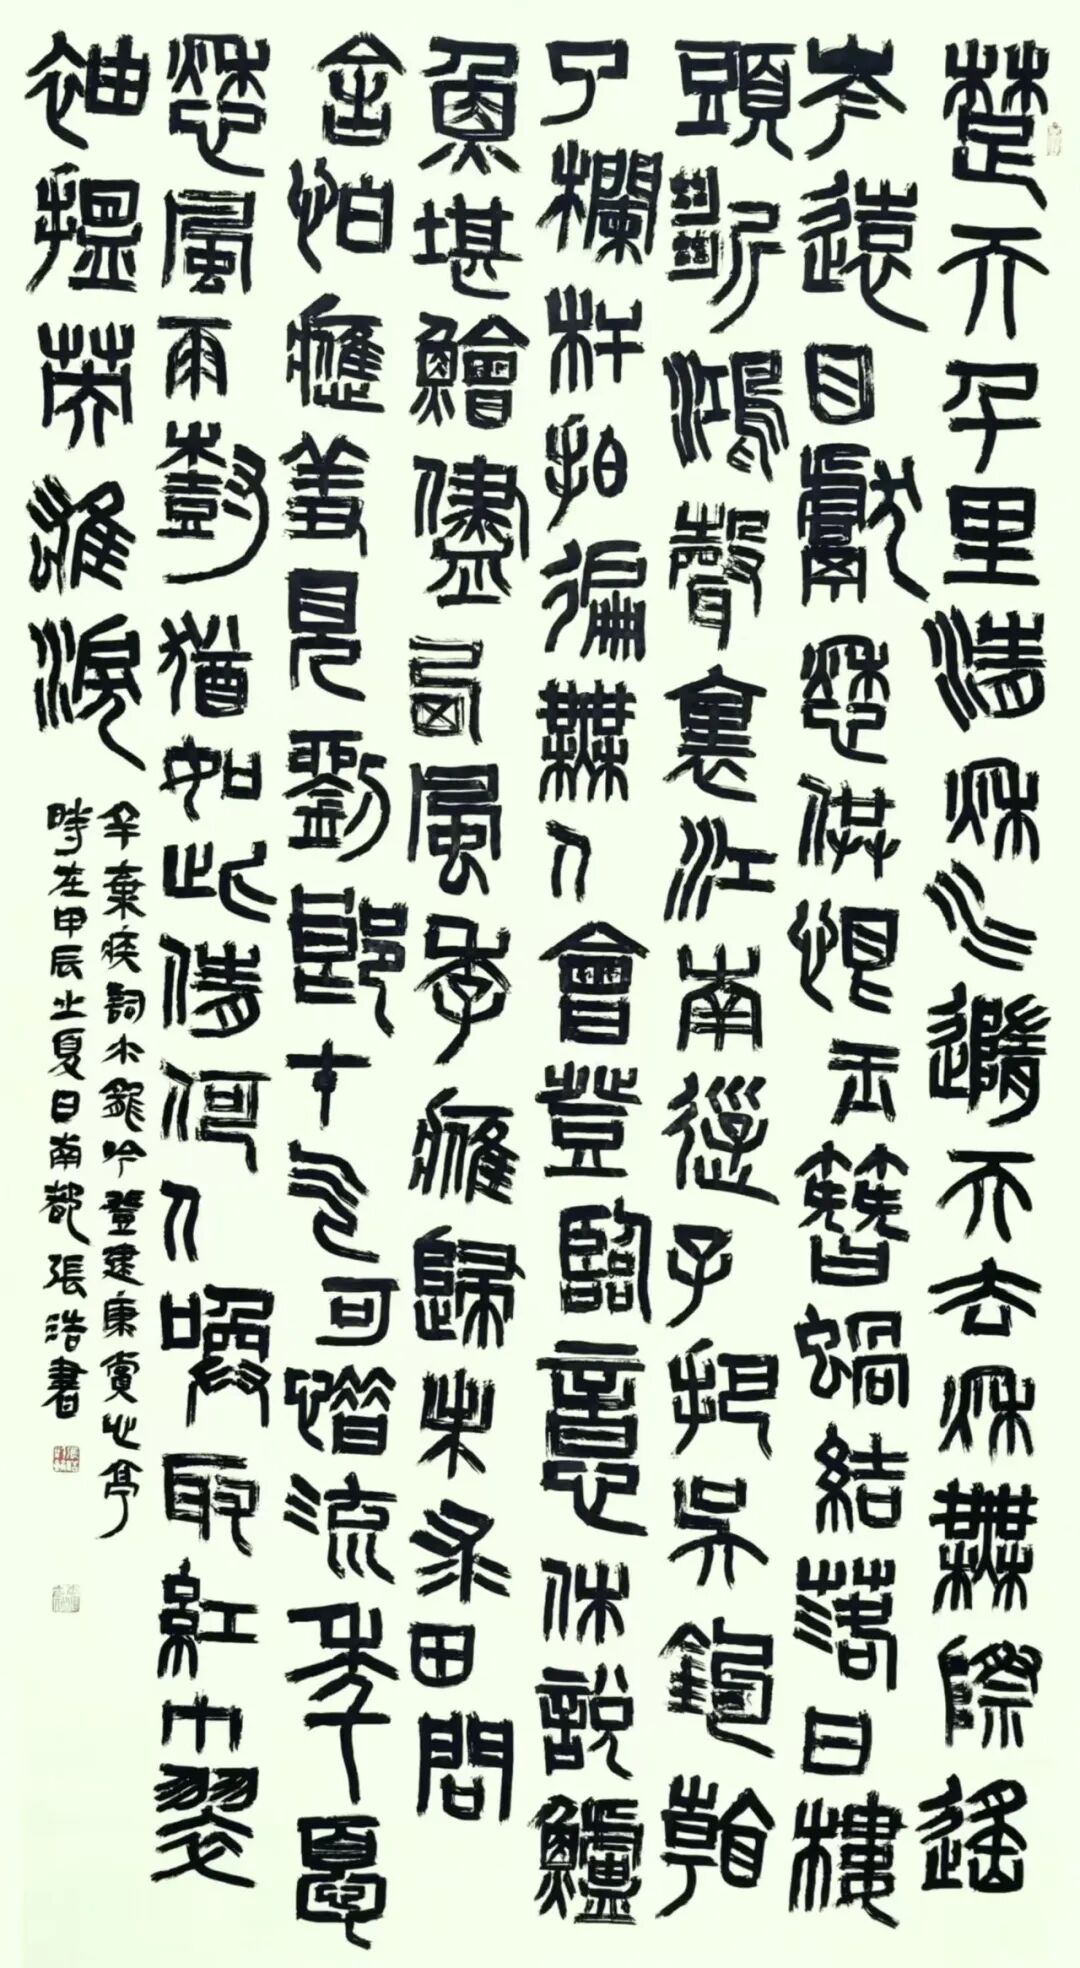 楚天千里清秋水隨天去秋無際遙
岑遠目獻愁供恨玉簪蝸結落日樓
頭斷鴻聲裏江南遊子把吳鉤看
了欄杆拍徧無人會登臨意休說鱸
魚堪鱠儘西風季鷹歸未求田問
舍怕應羞見劉郎才气可惜流年憂
愁風雨樹猶如此倩何人喚取紅巾翠
袖搵英雄淚
辛棄疾詞水龍吟登建康賞心亭
時在甲辰之夏日南都張浩書